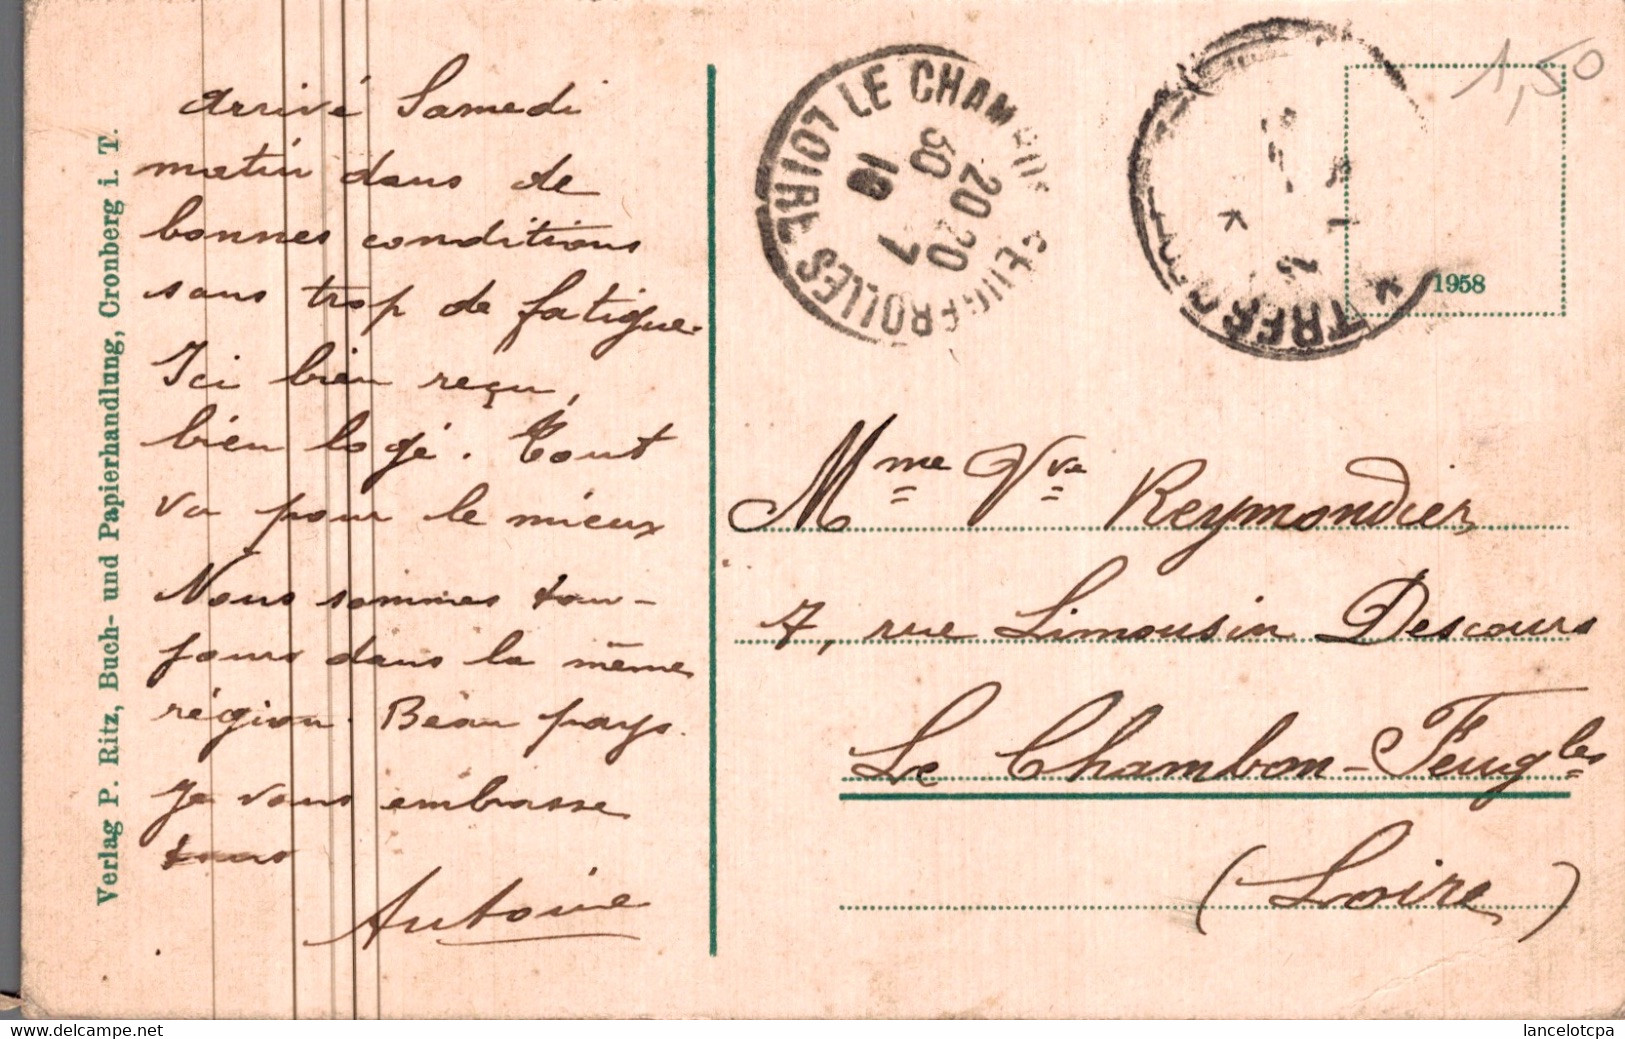 arrivé Samedi
matin dans de
bonnes conditions
sans trop de fatigue.
Ici bien reçu,
bien logé. Tout
va pour le mieux
Nous sommes tou-
jours dans la même
région. Beau pays.
Je vous embrasse
tous
Antoine
Verlag P. Ritz, Buch- und Papierhandlung, Cronberg i. T.
LE CHAM FEUGEROLLES LOIRE
18 30
20 20
7
TRES
1,50
1958
Mme Vve Reymondier
7, rue Limousin Descours
Le Chambon-Feugles
(Loire)
http://www.delcampe.net
lancelotcpa